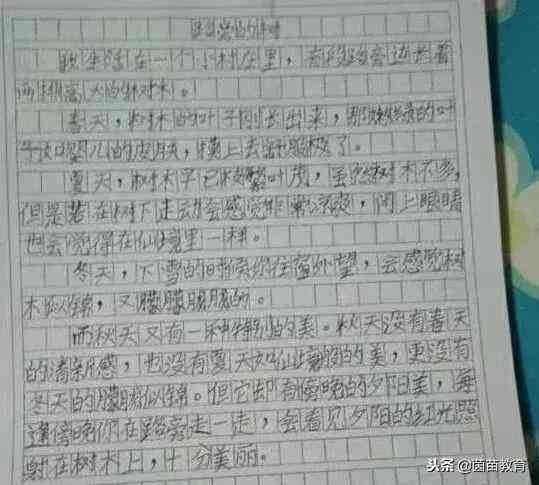 路旁的树
我生活在一个小村庄里，有的路旁边长着
两排高大的树木。
春天，树木的叶子刚长出来，那嫩绿的叶
子如婴儿的皮肤，摸上去舒服极了。
夏天，树木早已枝繁叶茂，虽然树木不多，
但是若在树下走动会感觉非常凉爽，闭上眼睛
也会觉得在仙境里一样。
冬天，下雪的时候你往窗外望，会感觉树
木似锦，又朦朦胧胧的。
而秋天又有一种特别的美。秋天没有春天
的清新感，也没有夏天如仙境的美，更没有
冬天的朦胧似锦。但它却有傍晚的夕阳美，每
逢傍晚你在路旁走一走，会看见夕阳的红光照
射在树木上，十分美丽。
头条 @茵苗教育